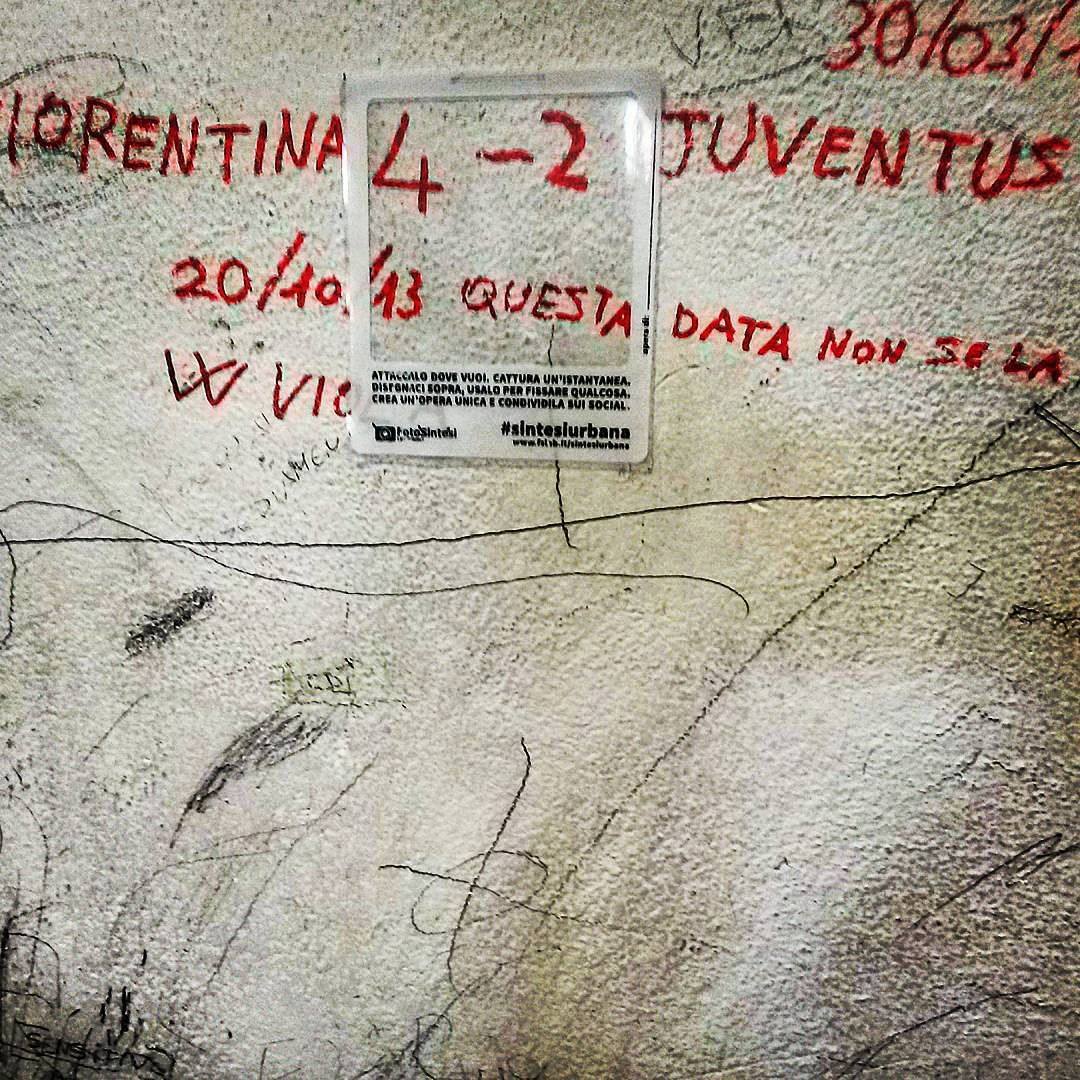 30/03/1
FIORENTINA 4-2 JUVENTUS
20/10/13 QUESTA DATA NON SE LA
W VIOLA
opera di:
ATTACCALO DOVE VUOI. CATTURA UN'ISTANTANEA.
DISEGNACI SOPRA, USALO PER FISSARE QUALCOSA.
CREA UN'OPERA UNICA E CONDIVIDILA SUI SOCIAL.
FotoSintesi
#sintesiurbana